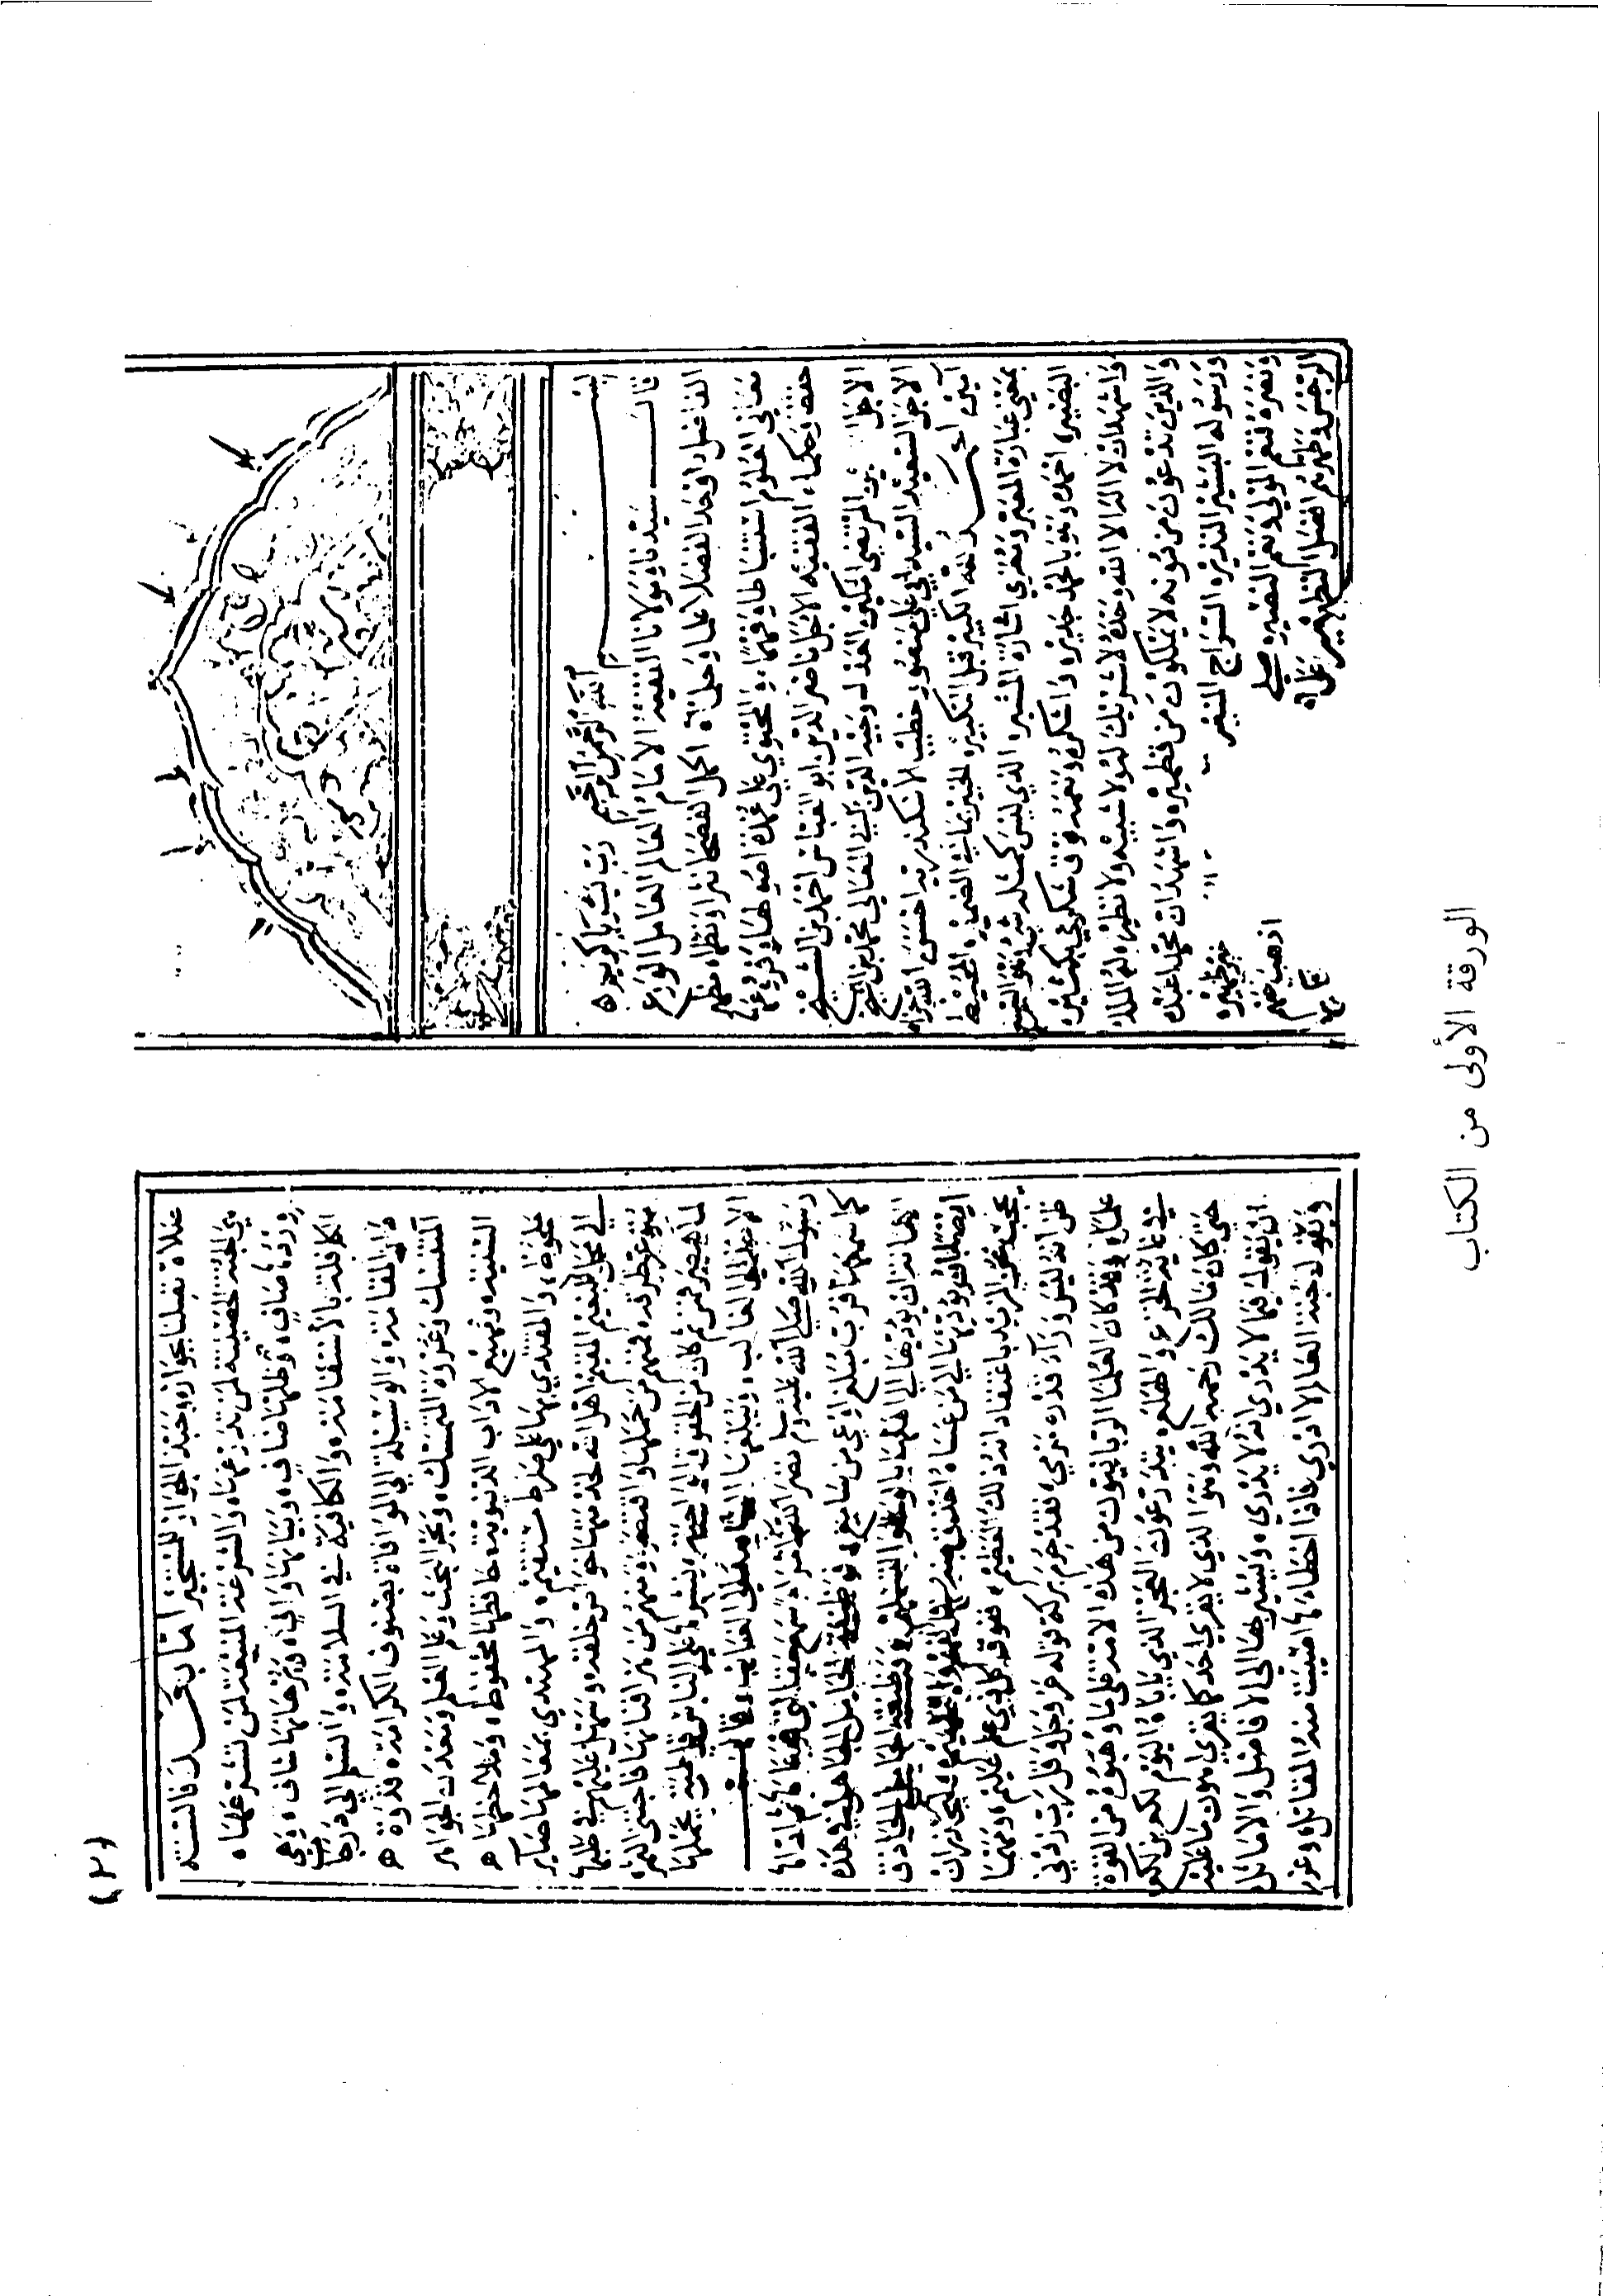 بسم الله الرحمن الرحيم رب يسر يا كريم
قال سيدنا ومولانا الفقيه الامام العالم العامل الورع
الفاضل اوحد الفضلا علما وحلما اكمل الفصحا نثرا ونظما مظهر
معاني العلوم استنباطا وفهما والمحتوي على عمدة اصولها وفروعها
حفظا وحكما الفقيه الاجل ناصر الدين ابو العباس احمد بن الشيخ
الاجل المرتضى المكين العدل وجيه الدين ابي المعالي محمد بن الشيخ
الاجل السعيد السيد ابي علي منصور خطيب الاسكندرية احسن الله جزاه
آمين الحمد لله الكبير قبل التكبير الخبير بخائنة الضمير المحيط
بمعنى عبارة المعبر ومغزى اشارة المشير الذي ليس كمثله شيء وهو السميع
البصير احمده وهو بالحمد جدير واشكره ونعمه فوق شكري بكثير
واشهد ان لا اله الا الله وحده لا شريك له ولا شبيه ولا نظير له الملك
والذين تدعون من دونه لا يملكون من قطمير واشهد ان محمدا عبده
ورسوله البشير النذير السراج المنير خير ظهير
ونصره فنعم المولى ونعم النصير صلى اذهب عنهم
الرجس وطهرهم افضل التطهير على
(٢)
صلاة تقبلنا بجوازه وحبذا الجواز للمستجير اما بعد فالسنة
هي الجنة الحصينة لمن تدرعها والشرعة المنيعة لمن تشرعها
وردها صاف وظلها ضاف وبيانها واف وبرهانها شاف وهي
الكافلة بالاستقامة والكافية في السلامة والسلم الى درجات
دار المقامة والوسيلة الى الموافاة بصنوف الكرامة قدوة
المتنسك وعروة المتمسك وبحر البحث وعلم العلم ومعدن الجواهر
السنية ومنبع الاداب الدينية حافظها محفوظ وملاحظها
ملحوظ والمقتدي بها على صراط مستقيم والمهتدي بمعالمها صاير
الى محل النعيم المقيم اهل الله لخدمتها خواص خلقه وسهل عليهم في طلبها
متوعر طرقه فمنهم من حملها واقتصر ومنهم من هز افنانها فاجتنى الثمر
لما هصر فمن ثم كان من الحقوق الواجبة نشرها على الناس قاطبة يحملها
الاعظم الى الغالب ويبلغها الشاهد الى الغائب وقال
رسول الله صلى الله عليه وسلم نضر الله امرا سمع مقالتي فوعاها فاداها
كما سمعها فرب مبلغ اوعى من سامع فوظيفة الحامل لها هذه
الامانة ان يؤديها الى اهلها بالوفاء والتسليم ووظيفة الحامل الحاذق
ايضا ان يؤديها الى من عساه احذق منه في الفهم والتفهيم وليحذر ان
يحجب عن المزيد باعتقاد انه ذلك العظيم ففوق كل ذي علم عليم ومهما
ظن انه ليس وراء قدره مرمى فقد حرم بركة قوله عز وجل وقل رب زدني
علما وقد كان العلما الربانيون من هذه الامة على ما وهبوه من القوة
في غاية الجزع والهلع يتدرعون العجز الذي ياباه اليوم لكع بن لكع
حتى كان مالك رحمه الله وهو الذي لا يفرى احد كما يفرى يهون ما عليه
ان يقول فيما لا يدري انه لا يدري ويشير بها الى الافاضل والاماثل
ويقول جنة العالم لا ادري فاذا اخطاها اصيبت منه المقاتل وعزز
الورقة الأولى من الكتاب